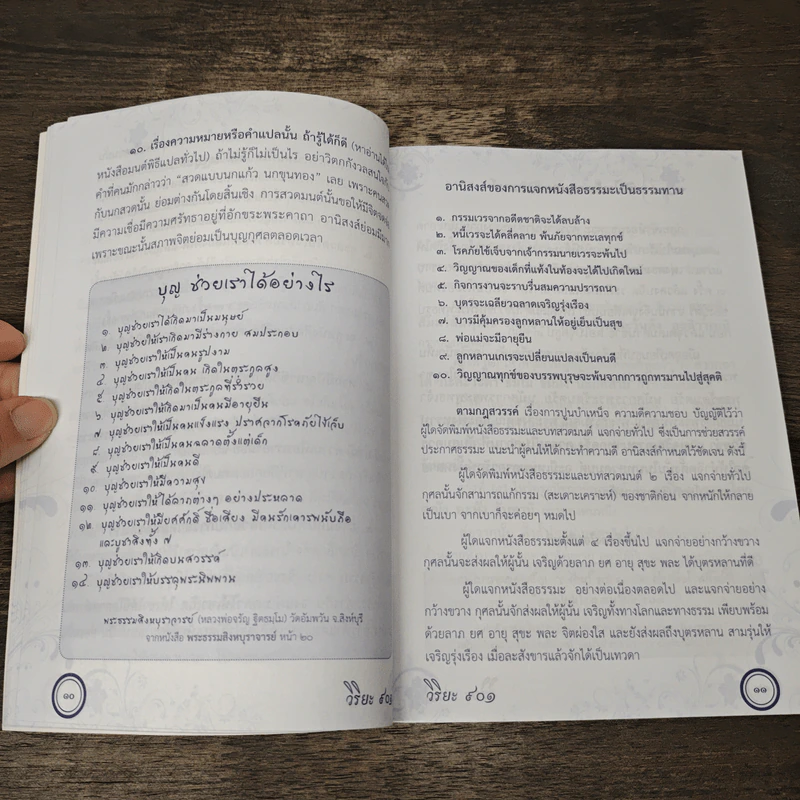 ๑๐. เรื่องความหมายหรือคำแปลนั้น ถ้ารู้ได้ก็ดี (หาอ่านได้ใน
หนังสือมนต์พิธีแปลทั่วไป) ถ้าไม่รู้ก็ไม่เป็นไร อย่าวิตกกังวลสนใจกับ
คำที่คนมักกล่าวว่า "สวดแบบนกแก้ว นกขุนทอง" เลย เพราะคนสวด
กับนกสวดนั้น ย่อมต่างกันโดยสิ้นเชิง การสวดมนต์นั้นขอให้มีจิต
มีความเชื่อมีความศรัทธาอยู่ที่อักขระพระคาถา อานิสงส์ย่อมมี
เพราะขณะนั้นสภาพจิตย่อมเป็นบุญกุศลตลอดเวลา
บุญ ช่วยเราได้อย่างไร
๑ บุญช่วยเราได้เกิดมาเป็นมนุษย์
๒ บุญช่วยให้เราเกิดมามีร่างกาย สมประกอบ
๓ บุญช่วยเราให้เป็นคนรูปงาม
๔ บุญช่วยเราให้เป็นคน เกิดในตระกูลสูง
๕ บุญช่วยเราให้เกิดในตระกูลที่ร่ำรวย
๖ บุญช่วยให้เกิดมาเป็นคนมีอายุยืน
๗ บุญช่วยเราให้เป็นคนแข็งแรง ปราศจากโรคภัยไข้เจ็บ
๘ บุญช่วยเราให้เป็นคนฉลาดตั้งแต่เด็ก
๙ บุญช่วยเราให้เป็นคนดี
๑๐ บุญช่วยเราให้มีความสุข
๑๑ บุญช่วยเราให้ได้ลาภต่างๆ อย่างประหลาด
๑๒ บุญช่วยเราให้มียศศักดิ์ ชื่อเสียง มีคนรักเคารพนับถือ
และบูชาสิ่งทั้ง ๗
๑๓ บุญช่วยเราให้เกิดบนสวรรค์
๑๔ บุญช่วยเราให้บรรลุพระนิพพาน
พระธรรมสิงหบุราจารย์ (หลวงพ่อจรัญ ฐิตธมฺโม) วัดอัมพวัน จ.สิงห์บุรี
จากหนังสือ พระธรรมสิงหบุราจารย์ หน้า ๒๐
๑๐
วิริยะ ๙๐๑
อานิสงส์ของการแจกหนังสือธรรมะเป็นธรรมทาน
๑. กรรมเวรจากอดีตชาติจะได้ลบล้าง
๒. หนี้เวรจะได้คลี่คลาย พ้นภัยจากทะเลทุกข์
๓. โรคภัยไข้เจ็บจากเจ้ากรรมนายเวรจะพ้นไป
๔. วิญญาณของเด็กที่แท้งในท้องจะได้ไปเกิดใหม่
๕. กิจการงานจะราบรื่นสมความปรารถนา
๖. บุตรจะเฉลียวฉลาดเจริญรุ่งเรือง
๗. บารมีคุ้มครองลูกหลานให้อยู่เย็นเป็นสุข
๘. พ่อแม่จะมีอายุยืน
๙. ลูกหลานเกเรจะเปลี่ยนแปลงเป็นคนดี
๑๐. วิญญาณทุกข์ของบรรพบุรุษจะพ้นจากการถูกทรมานไปสู่สุคติ
ตามกฎสวรรค์ เรื่องการปูนบำเหน็จ ความดีความชอบ บัญญัติไว้ว่า
ผู้ใดจัดพิมพ์หนังสือธรรมะและบทสวดมนต์ แจกจ่ายทั่วไป ซึ่งเป็นการช่วยสวรรค์
ประกาศธรรมะ แนะนำผู้คนให้ได้กระทำความดี อานิสงส์กำหนดไว้ชัดเจน ดังนี้
ผู้ใดจัดพิมพ์หนังสือธรรมะและบทสวดมนต์ ๒ เรื่อง แจกจ่ายทั่วไป
กุศลนั้นจักสามารถแก้กรรม (สะเดาะเคราะห์) ของชาติก่อน จากหนักให้กลาย
เป็นเบา จากเบาก็จะค่อยๆ หมดไป
ผู้ใดแจกหนังสือธรรมะตั้งแต่ ๔ เรื่องขึ้นไป แจกจ่ายอย่างกว้างขวาง
กุศลนั้นจะส่งผลให้ผู้นั้น เจริญด้วยลาภ ยศ อายุ สุขะ พละ ได้บุตรหลานที่ดี
ผู้ใดแจกหนังสือธรรมะ อย่างต่อเนื่องตลอดไป และแจกจ่ายอย่าง
กว้างขวาง กุศลนั้นจักส่งผลให้ผู้นั้น เจริญทั้งทางโลกและทางธรรม เพียบพร้อม
ด้วยลาภ ยศ อายุ สุขะ พละ จิตผ่องใส และยังส่งผลถึงบุตรหลาน สามรุ่นให้
เจริญรุ่งเรือง เมื่อละสังขารแล้วจักได้เป็นเทวดา
วิริยะ ๙๐๑
๑๑